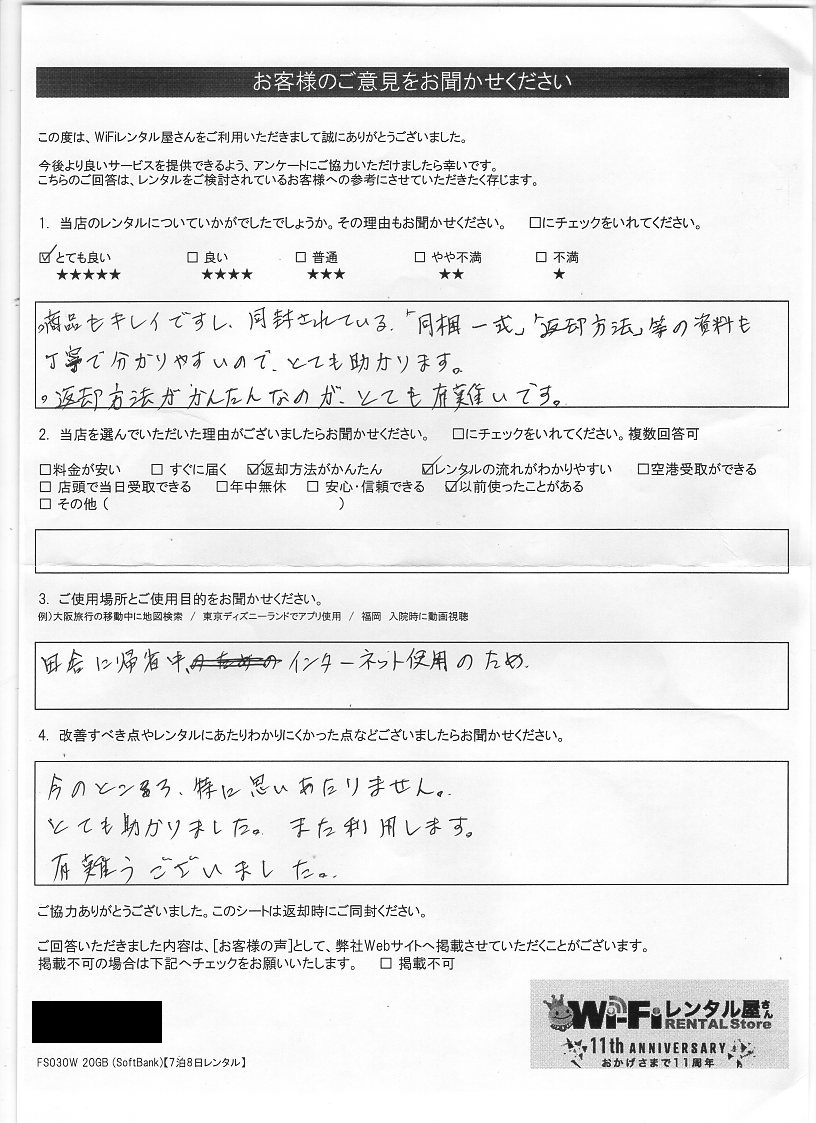 お客様のご意見をお聞かせください
この度は、WiFiレンタル屋さんをご利用いただきまして誠にありがとうございました。
今後より良いサービスを提供できるよう、アンケートにご協力いただけましたら幸いです。
こちらのご回答は、レンタルをご検討されているお客様への参考にさせていただきたく存じます。
1. 当店のレンタルについていかがでしたでしょうか。その理由もお聞かせください。 □にチェックをいれてください。
☑とても良い □ 良い □ 普通 □ やや不満 □ 不満
★★★★★ ★★★★ ★★★ ★★ ★
。商品もキレイですし、同封されている、「同梱一式」「返却方法」等の資料も
丁寧で分かりやすいので、とても助かります。
。返却方法がかんたんなのが、とても有難いです。
2. 当店を選んでいただいた理由がございましたらお聞かせください。 □にチェックをいれてください。複数回答可
□料金が安い □ すぐに届く ☑返却方法がかんたん ☑レンタルの流れがわかりやすい □空港受取ができる
□ 店頭で当日受取できる □年中無休 □ 安心・信頼できる ☑以前使ったことがある
□ その他 ( )
3. ご使用場所とご使用目的をお聞かせください。
例)大阪旅行の移動中に地図検索 / 東京ディズニーランドでアプリ使用 / 福岡 入院時に動画視聴
田舎に帰省中、インターネット使用のため。
4. 改善すべき点やレンタルにあたりわかりにくかった点などございましたらお聞かせください。
今のところ、特に思いあたりません。
とても助かりました。また利用します。
有難うございました。
ご協力ありがとうございました。このシートは返却時にご同封ください。
ご回答いただきました内容は、[お客様の声]として、弊社Webサイトへ掲載させていただくことがございます。
掲載不可の場合は下記へチェックをお願いいたします。 □ 掲載不可
Wi-Fiレンタル屋さん
RENTAL Store
11th ANNIVERSARY
おかげさまで11周年
FS030W 20GB (SoftBank)【7泊8日レンタル】